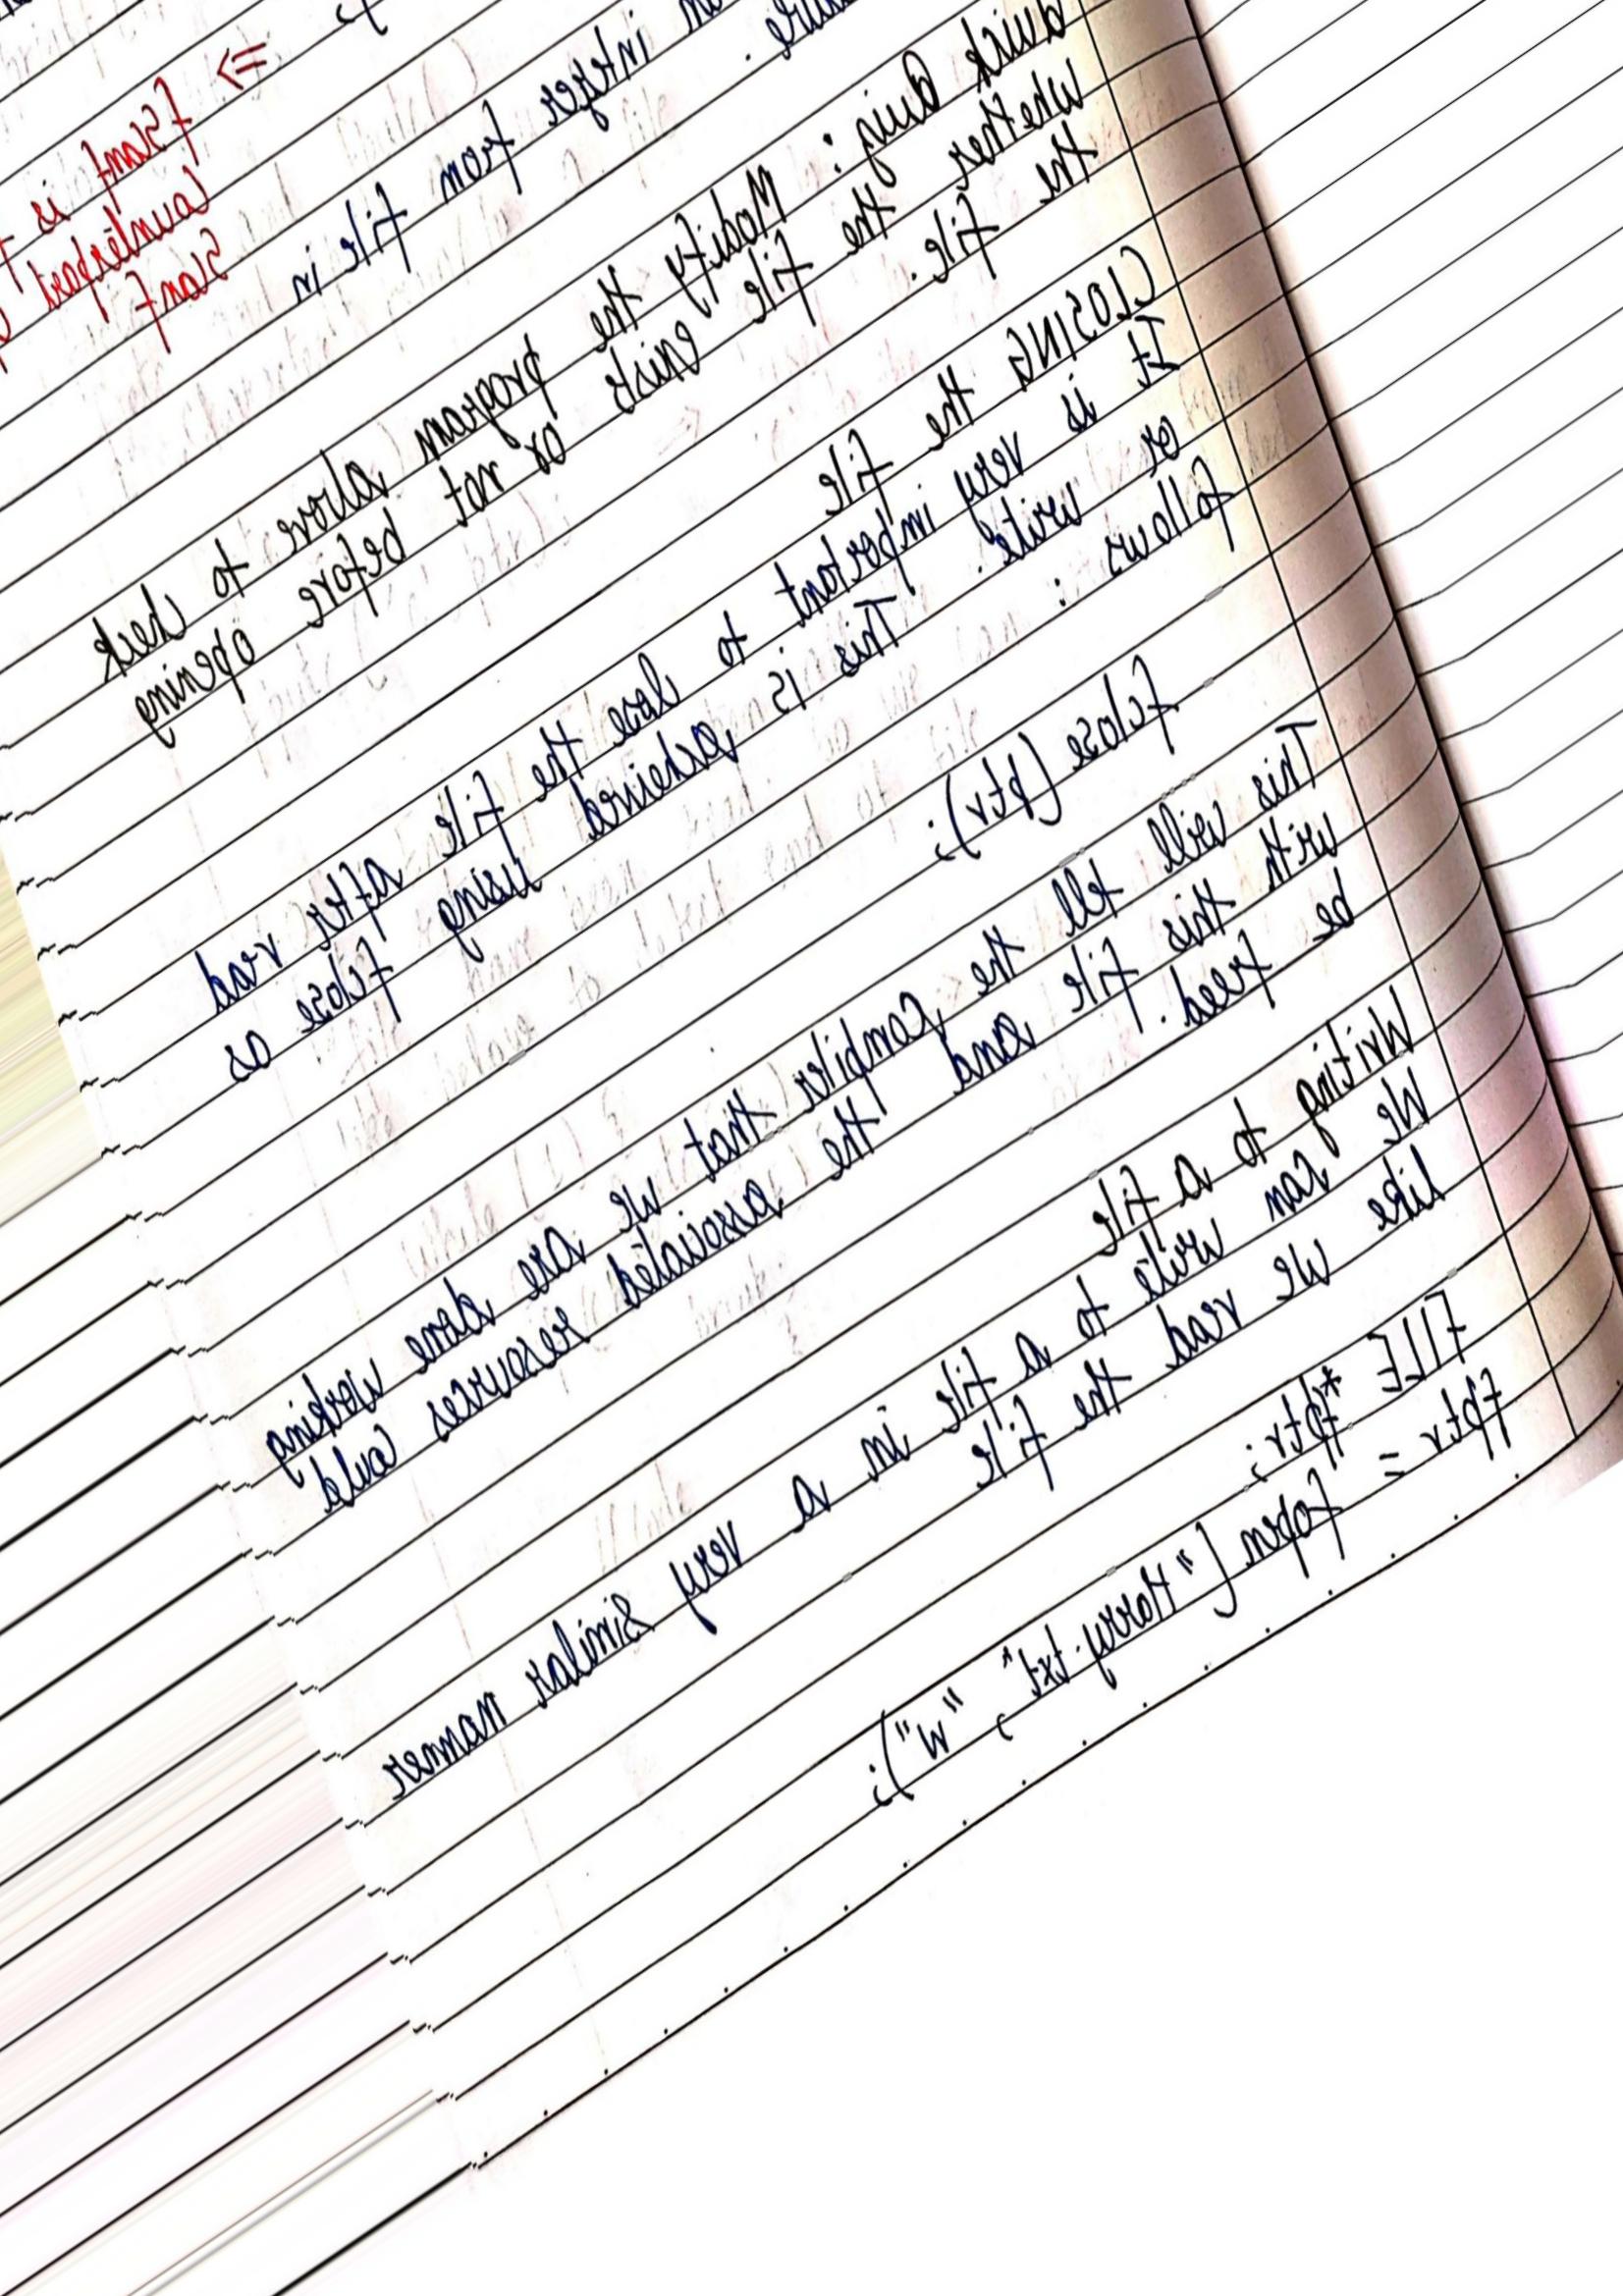 => fscanf is
counterpart
scanf
integer from file in
Quick Quiz: Modify the program above to check
whether the file exists or not before opening
the file.
CLOSING the file
It is very important to close the file after read
or write. This is acheived using fclose as
follows :
fclose (ptr);
This will tell the compiler that we are done working
with this file and the associated resources could
be freed.
Writing to a file
We can write to a file in a very similar manner
like we read the file
FILE *fptr;
fptr = fopen ("Harry.txt", "w");